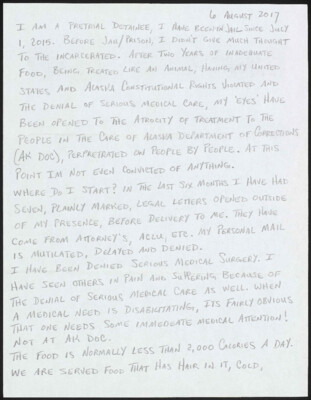 6 AUGUST 2017
I AM A PRETRIAL DETAINEE, I HAVE BEEN IN JAIL SINCE JULY
1, 2015. BEFORE JAIL/PRISON, I DIDN'T GIVE MUCH THOUGHT
TO THE INCARCERATED. AFTER TWO YEARS OF INADEQUATE
FOOD, BEING TREATED LIKE AN ANIMAL, HAVING MY UNITED
STATES AND ALASKA CONSTITUTIONAL RIGHTS VIOLATED AND
THE DENIAL OF SERIOUS MEDICAL CARE, MY 'EYES' HAVE
BEEN OPENED TO THE ATROCITY OF TREATMENT TO THE
PEOPLE IN THE CARE OF ALASKA DEPARTMENT OF CORRECTIONS
(AK DOC), PERPETRATED ON PEOPLE BY PEOPLE. AT THIS
POINT IM NOT EVEN CONVICTED OF ANYTHING.
WHERE DO I START? IN THE LAST SIX MONTHS I HAVE HAD
SEVEN, PLAINLY MARKED, LEGAL LETTERS OPENED OUTSIDE
OF MY PRESENCE, BEFORE DELIVERY TO ME. THEY HAVE
COME FROM ATTORNEY'S, ACLU, ETC. MY PERSONAL MAIL
IS MUTILATED, DELAYED AND DENIED.
I HAVE BEEN DENIED SERIOUS MEDICAL SURGERY. I
HAVE SEEN OTHERS IN PAIN AND SUFFERING BECAUSE OF
THE DENIAL OF SERIOUS MEDICAL CARE AS WELL. WHEN
A MEDICAL NEED IS DISABILITATING, ITS FAIRLY OBVIOUS
THAT ONE NEEDS SOME IMMEDIATE MEDICAL ATTENTION!
NOT AT AK DOC.
THE FOOD IS NORMALLY LESS THAN 2,000 CALORIES A DAY.
WE ARE SERVED FOOD THAT HAS HAIR IN IT, COLD,